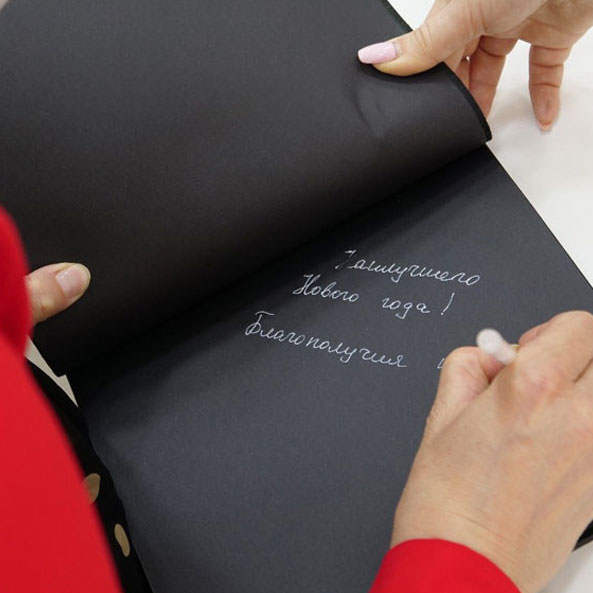 Наилучшего
Нового года!
Благополучия и